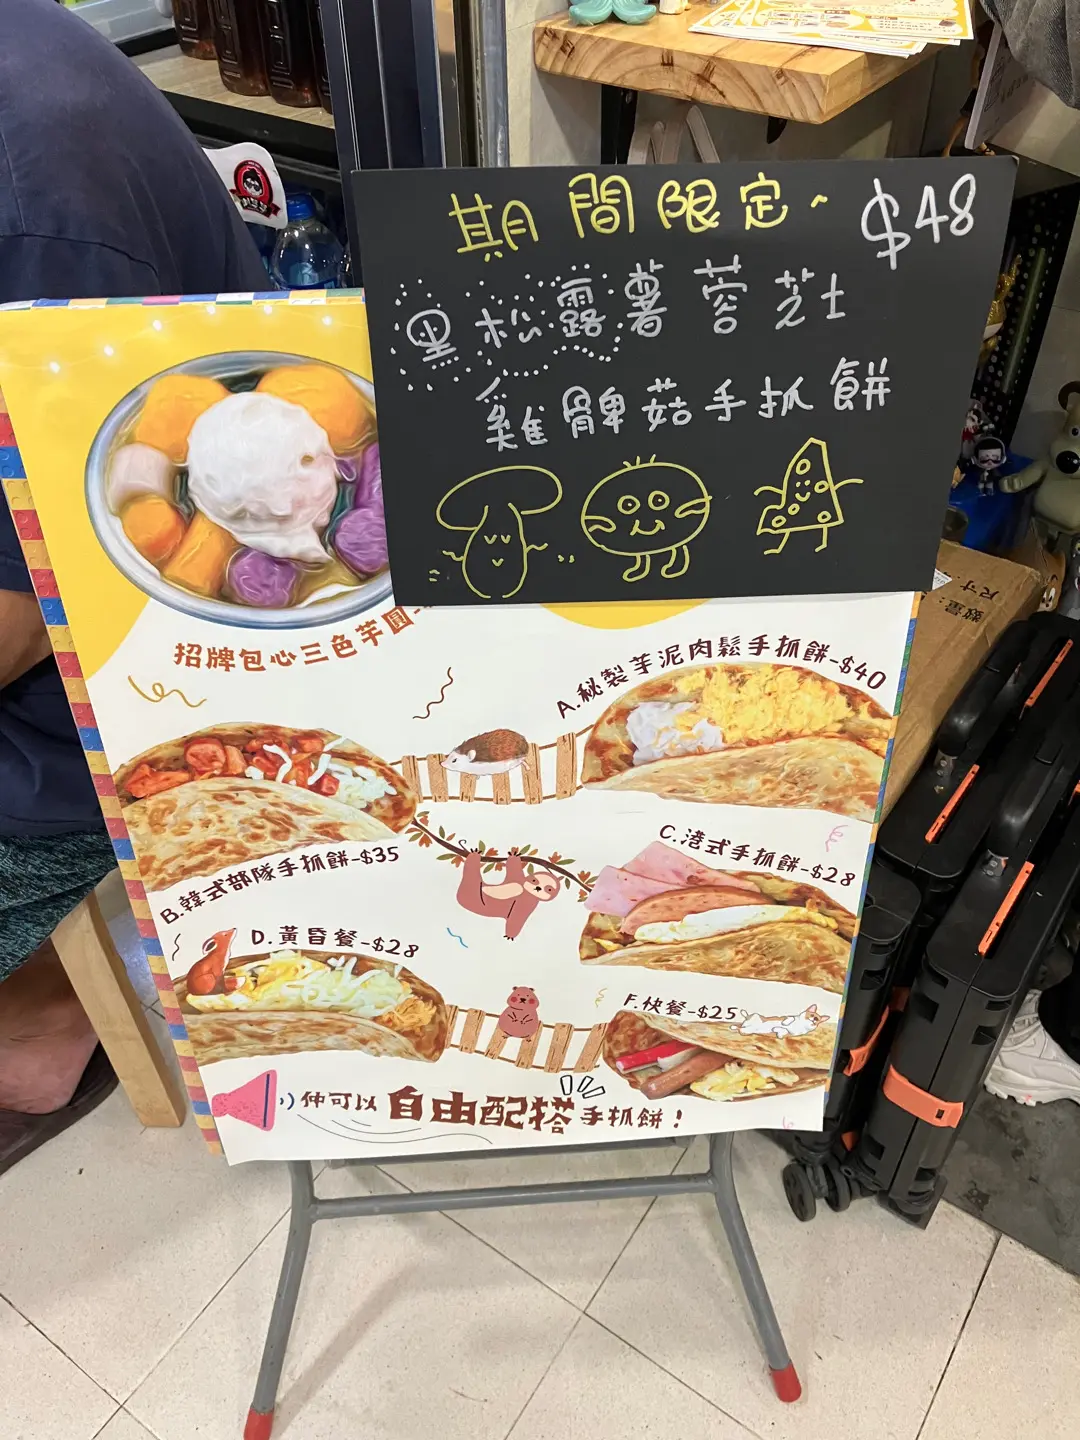 期間限定~ $48
黑松露薯蓉芝士
雞髀菇手抓餅
招牌包心三色芋圓
A.秘製芋泥肉鬆手抓餅-$40
B.韓式部隊手抓餅-$35
C.港式手抓餅-$28
D.黃昏餐-$28
F.快餐-$25
仲可以自由配搭手抓餅!
數量:
尺寸: